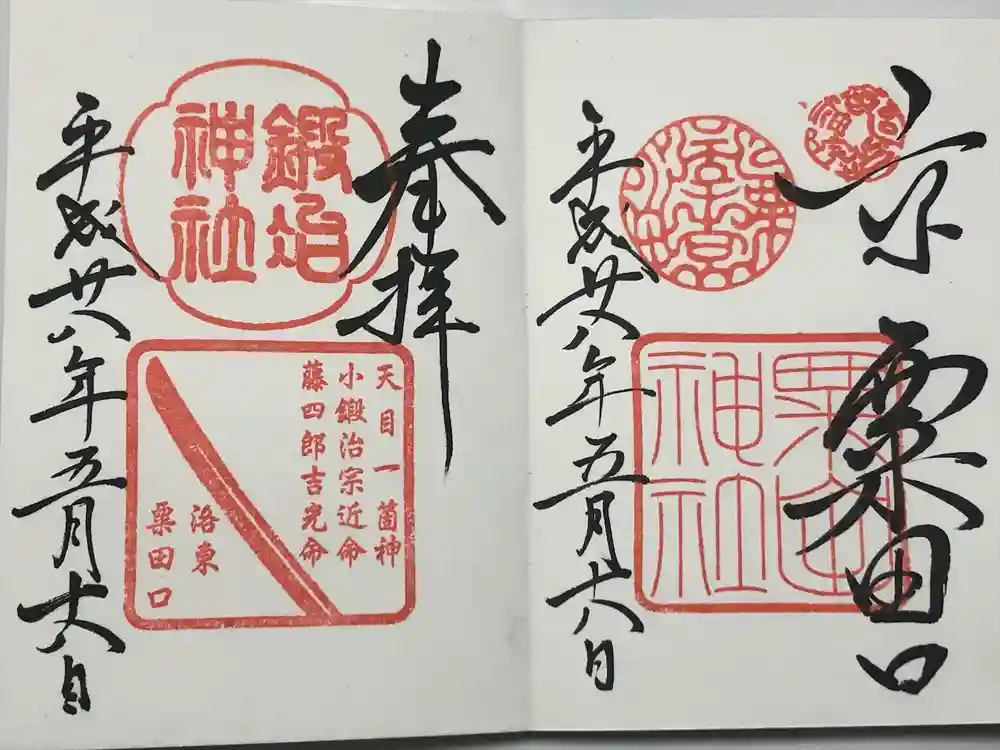 京 粟田口
粟田神社
平成廿八年五月十八日
奉拝
鍛冶
神社
天目一箇神
小鍛治宗近命
藤四郎吉光命
洛東
粟田口
平成廿八年五月十八日